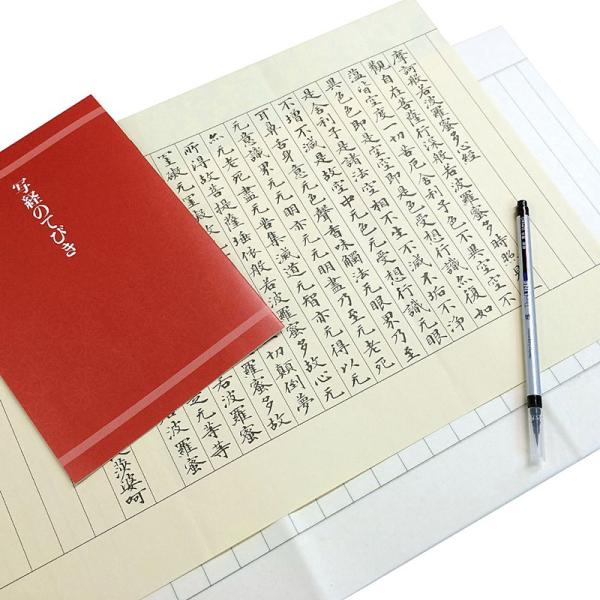 写経のてびき
摩訶般若波羅蜜多心経
觀自在菩薩行深般若波羅蜜多時照見
蘊皆空度一切苦厄舎利子色不異空空不
異色色即是空空即是色受想行識亦復如
是舎利子是諸法空相不生不滅不垢不淨
不增不減是故空中无色无受想行識无眼
耳鼻舌身意无色聲香味觸法无眼界乃至
无意識界无无明亦无无明盡乃至无老死
亦无老死盡无苦集滅道无智亦无得以无
所得故菩提薩埵依般若波羅蜜多故心无
罣礙无罣礙故 切顛倒夢
若波羅蜜多故
若波羅蜜
无等等
波羅蜜
婆呵